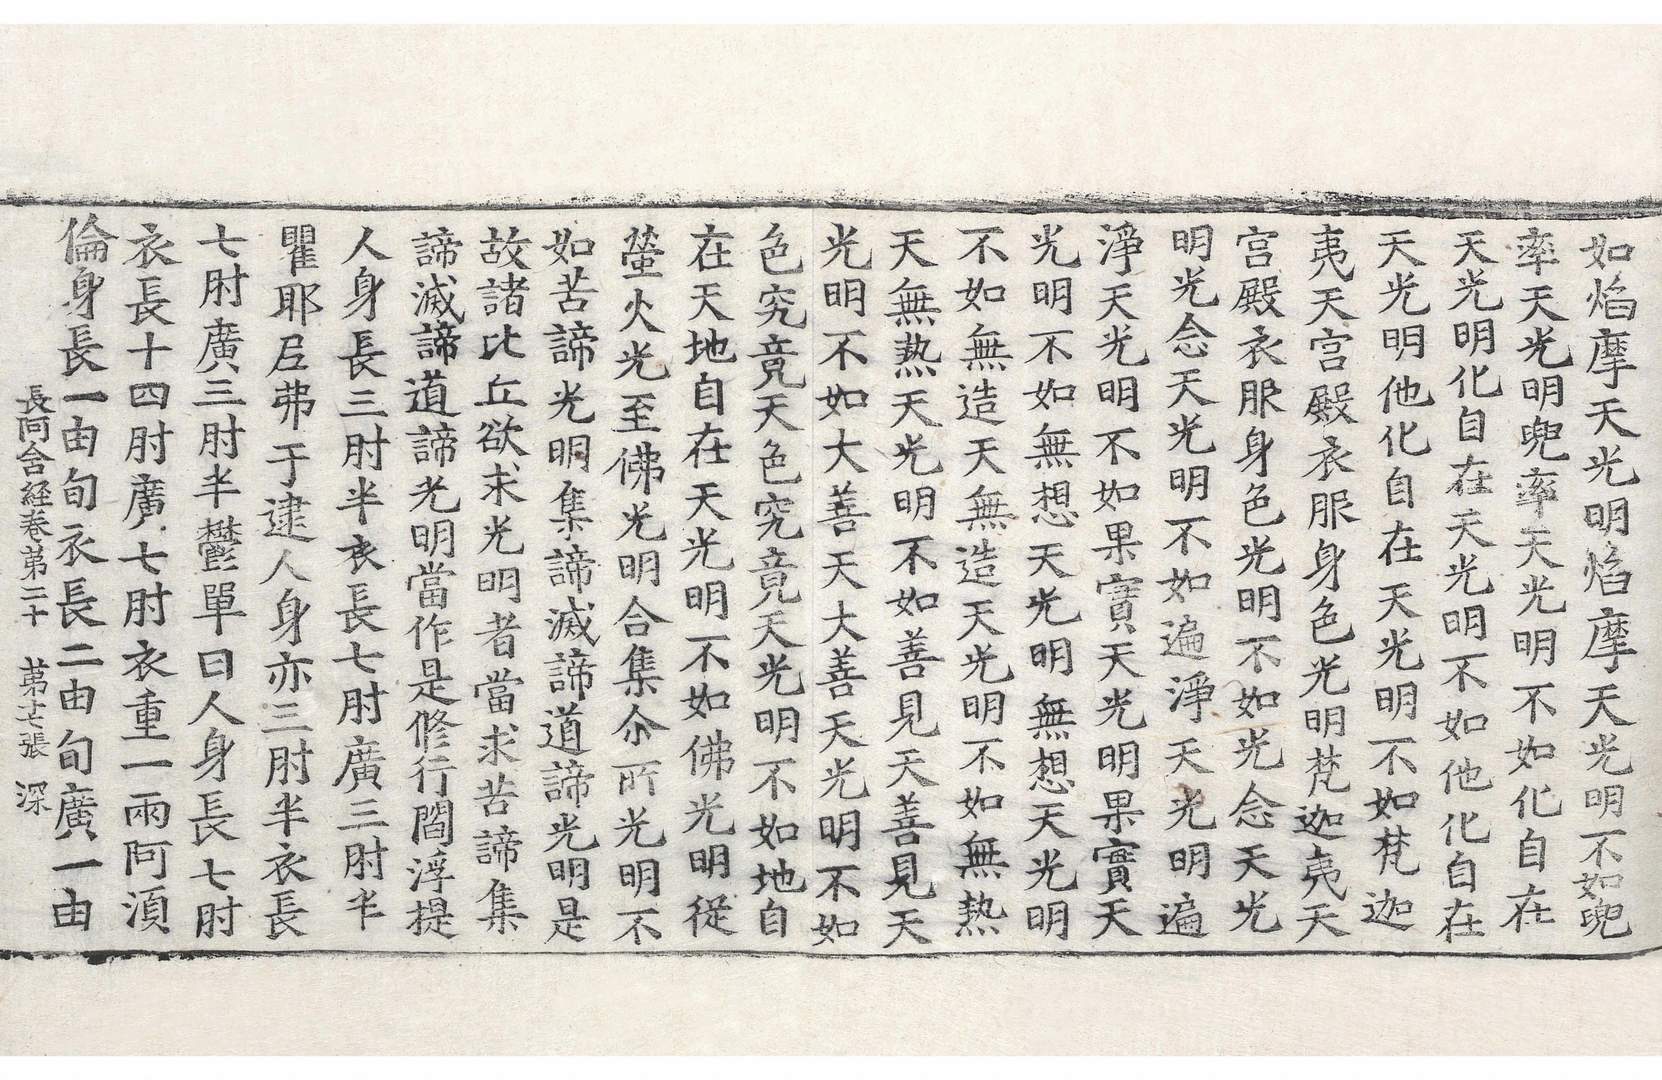 如焰摩天光明焰摩天光明不如兜
率天光明兜率天光明不如化自在
天光明化自在天光明不如他化自在
天光明他化自在天光明不如梵迦
夷天宮殿衣服身色光明梵迦夷天
宮殿衣服身色光明不如光念天光
明光念天光明不如遍淨天光明遍
淨天光明不如果實天光明果實天
光明不如無想天光明無想天光明
不如無造天無造天光明不如無熱
天無熱天光明不如善見天善見天
光明不如大善天大善天光明不如
色究竟天色究竟天光明不如地自
在天地自在天光明不如佛光明從
螢火光至佛光明合集尒所光明不
如苦諦光明集諦滅諦道諦光明是
故諸比丘欲求光明者當求苦諦集
諦滅諦道諦光明當作是修行閻浮提
人身長三肘半衣長七肘廣三肘半
瞿耶尼弗于逮人身亦三肘半衣長
七肘廣三肘半鬱單曰人身長七肘
衣長十四肘廣七肘衣重一兩阿須
倫身長一由旬衣長二由旬廣一由
長阿含経卷第二十 第十七張 深